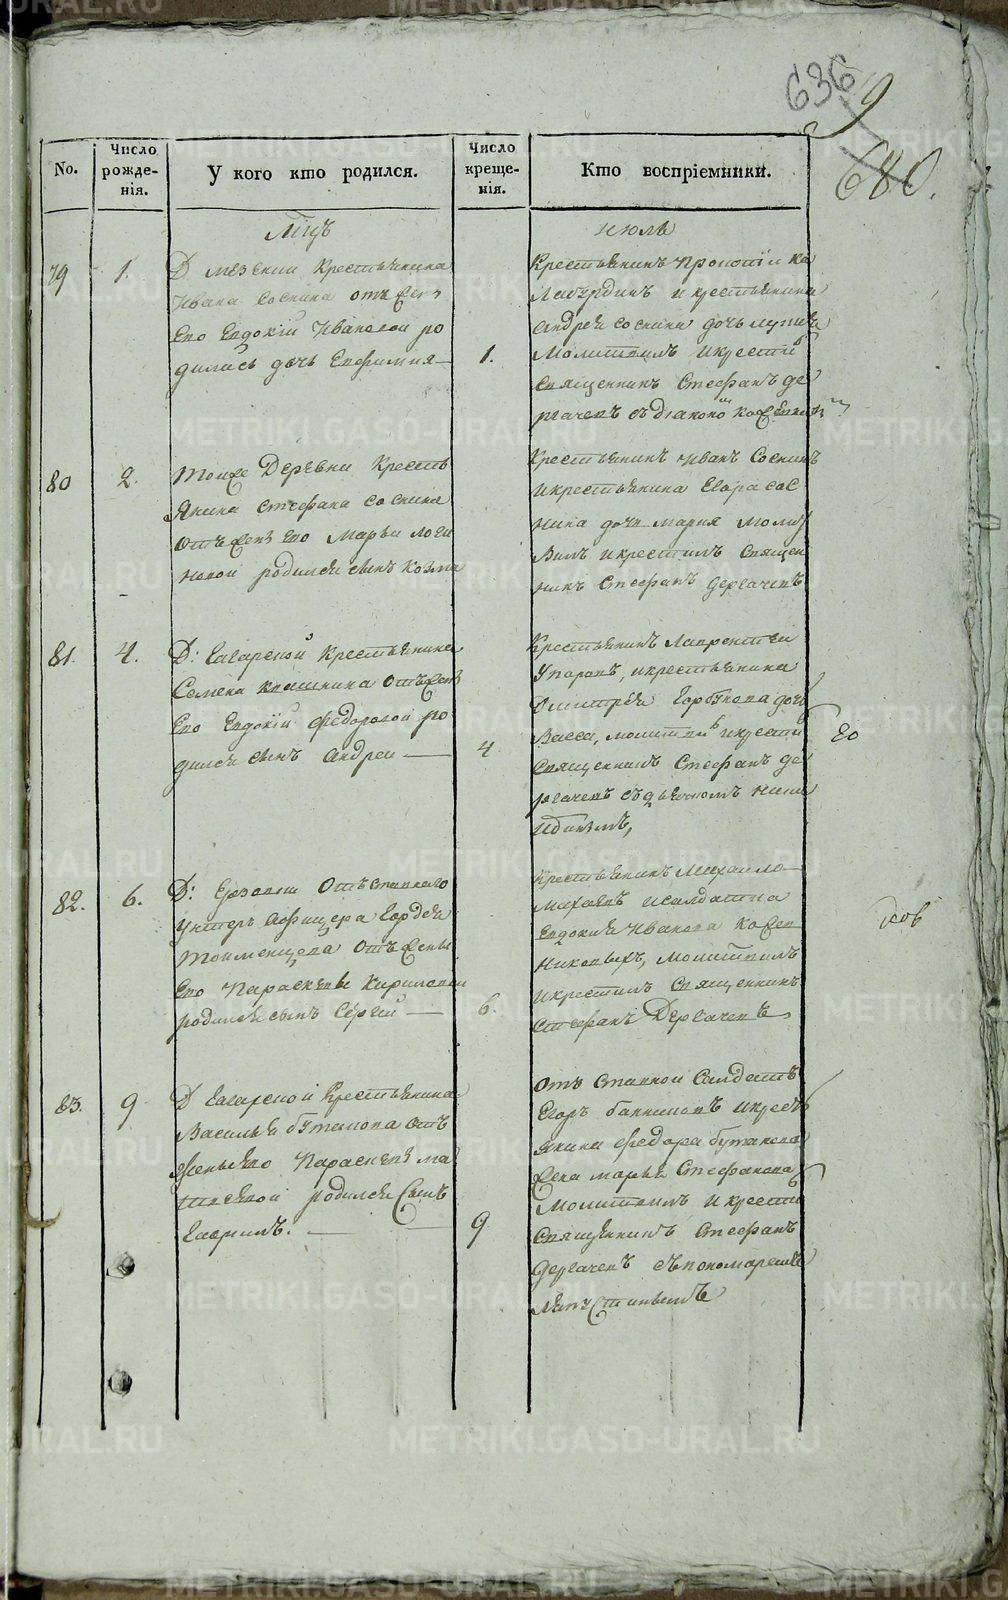 636
9
680.
No.
Число рожде-нія.
У кого кто родился.
Число креще-нія.
Кто воспріемники.
Мцъ
июль
79
1.
Д мезении Крестьянина
Ивана Соснина отъ жены
Его Евдокіи Ивановой ро
дилась дочь Евфимия —
1.
Крестьянинъ
и крестьянина
Андрея соснина дочь
Молитвилъ и крести
Священникъ Стефанъ де
ргачевъ съ діакономъ
80
2.
Тоиже Деревни Кресть
янина стефана соснина
отъ жены его Марьи логи
новой родился сынъ Козма
Крестьянинъ Иванъ Соснинъ
и крестьянина Егора сос
нина дочь Мария молит
вилъ и крестилъ Священ
никъ Стефанъ дергачевъ
81.
4.
Д: Гагарской Крестьянина
Семена квашнина отъ жены
Его Евдокіи федоровой ро
дился сынъ Андреи —
4
Крестьянинъ Лаврентеи
и крестьянина
Дмитрея Горбунова дочь
Васса, молитвилъ и крести
Священникъ Стефанъ де
ргачевъ съ дьячкомъ

82.
6.
Д: Отъставнаго
Унтеръ Афицера Гордея
Отъ жены
Его Параскевы Кириловой
родился сынъ Сергий —
6.
Крестьянинъ Михаило
и салдатка
Евдокия Иванова
Молитвилъ
и крестилъ Священникъ
Стефанъ Дергачевъ
83.
9
Д Гагарской Крестьянина
Василья бутакова отъ
жены его Параскевы ма
твеевой родился Сынъ
Гаврилъ. —
9
отъ ставной Салдатъ
Егоръ и кресть
янина федора бутакова
жена марья Стефанова
Молитвилъ и крести
Священникъ Стефанъ
дергачевъ съ пономаремъ

METRIKI.GASO-URAL.RU